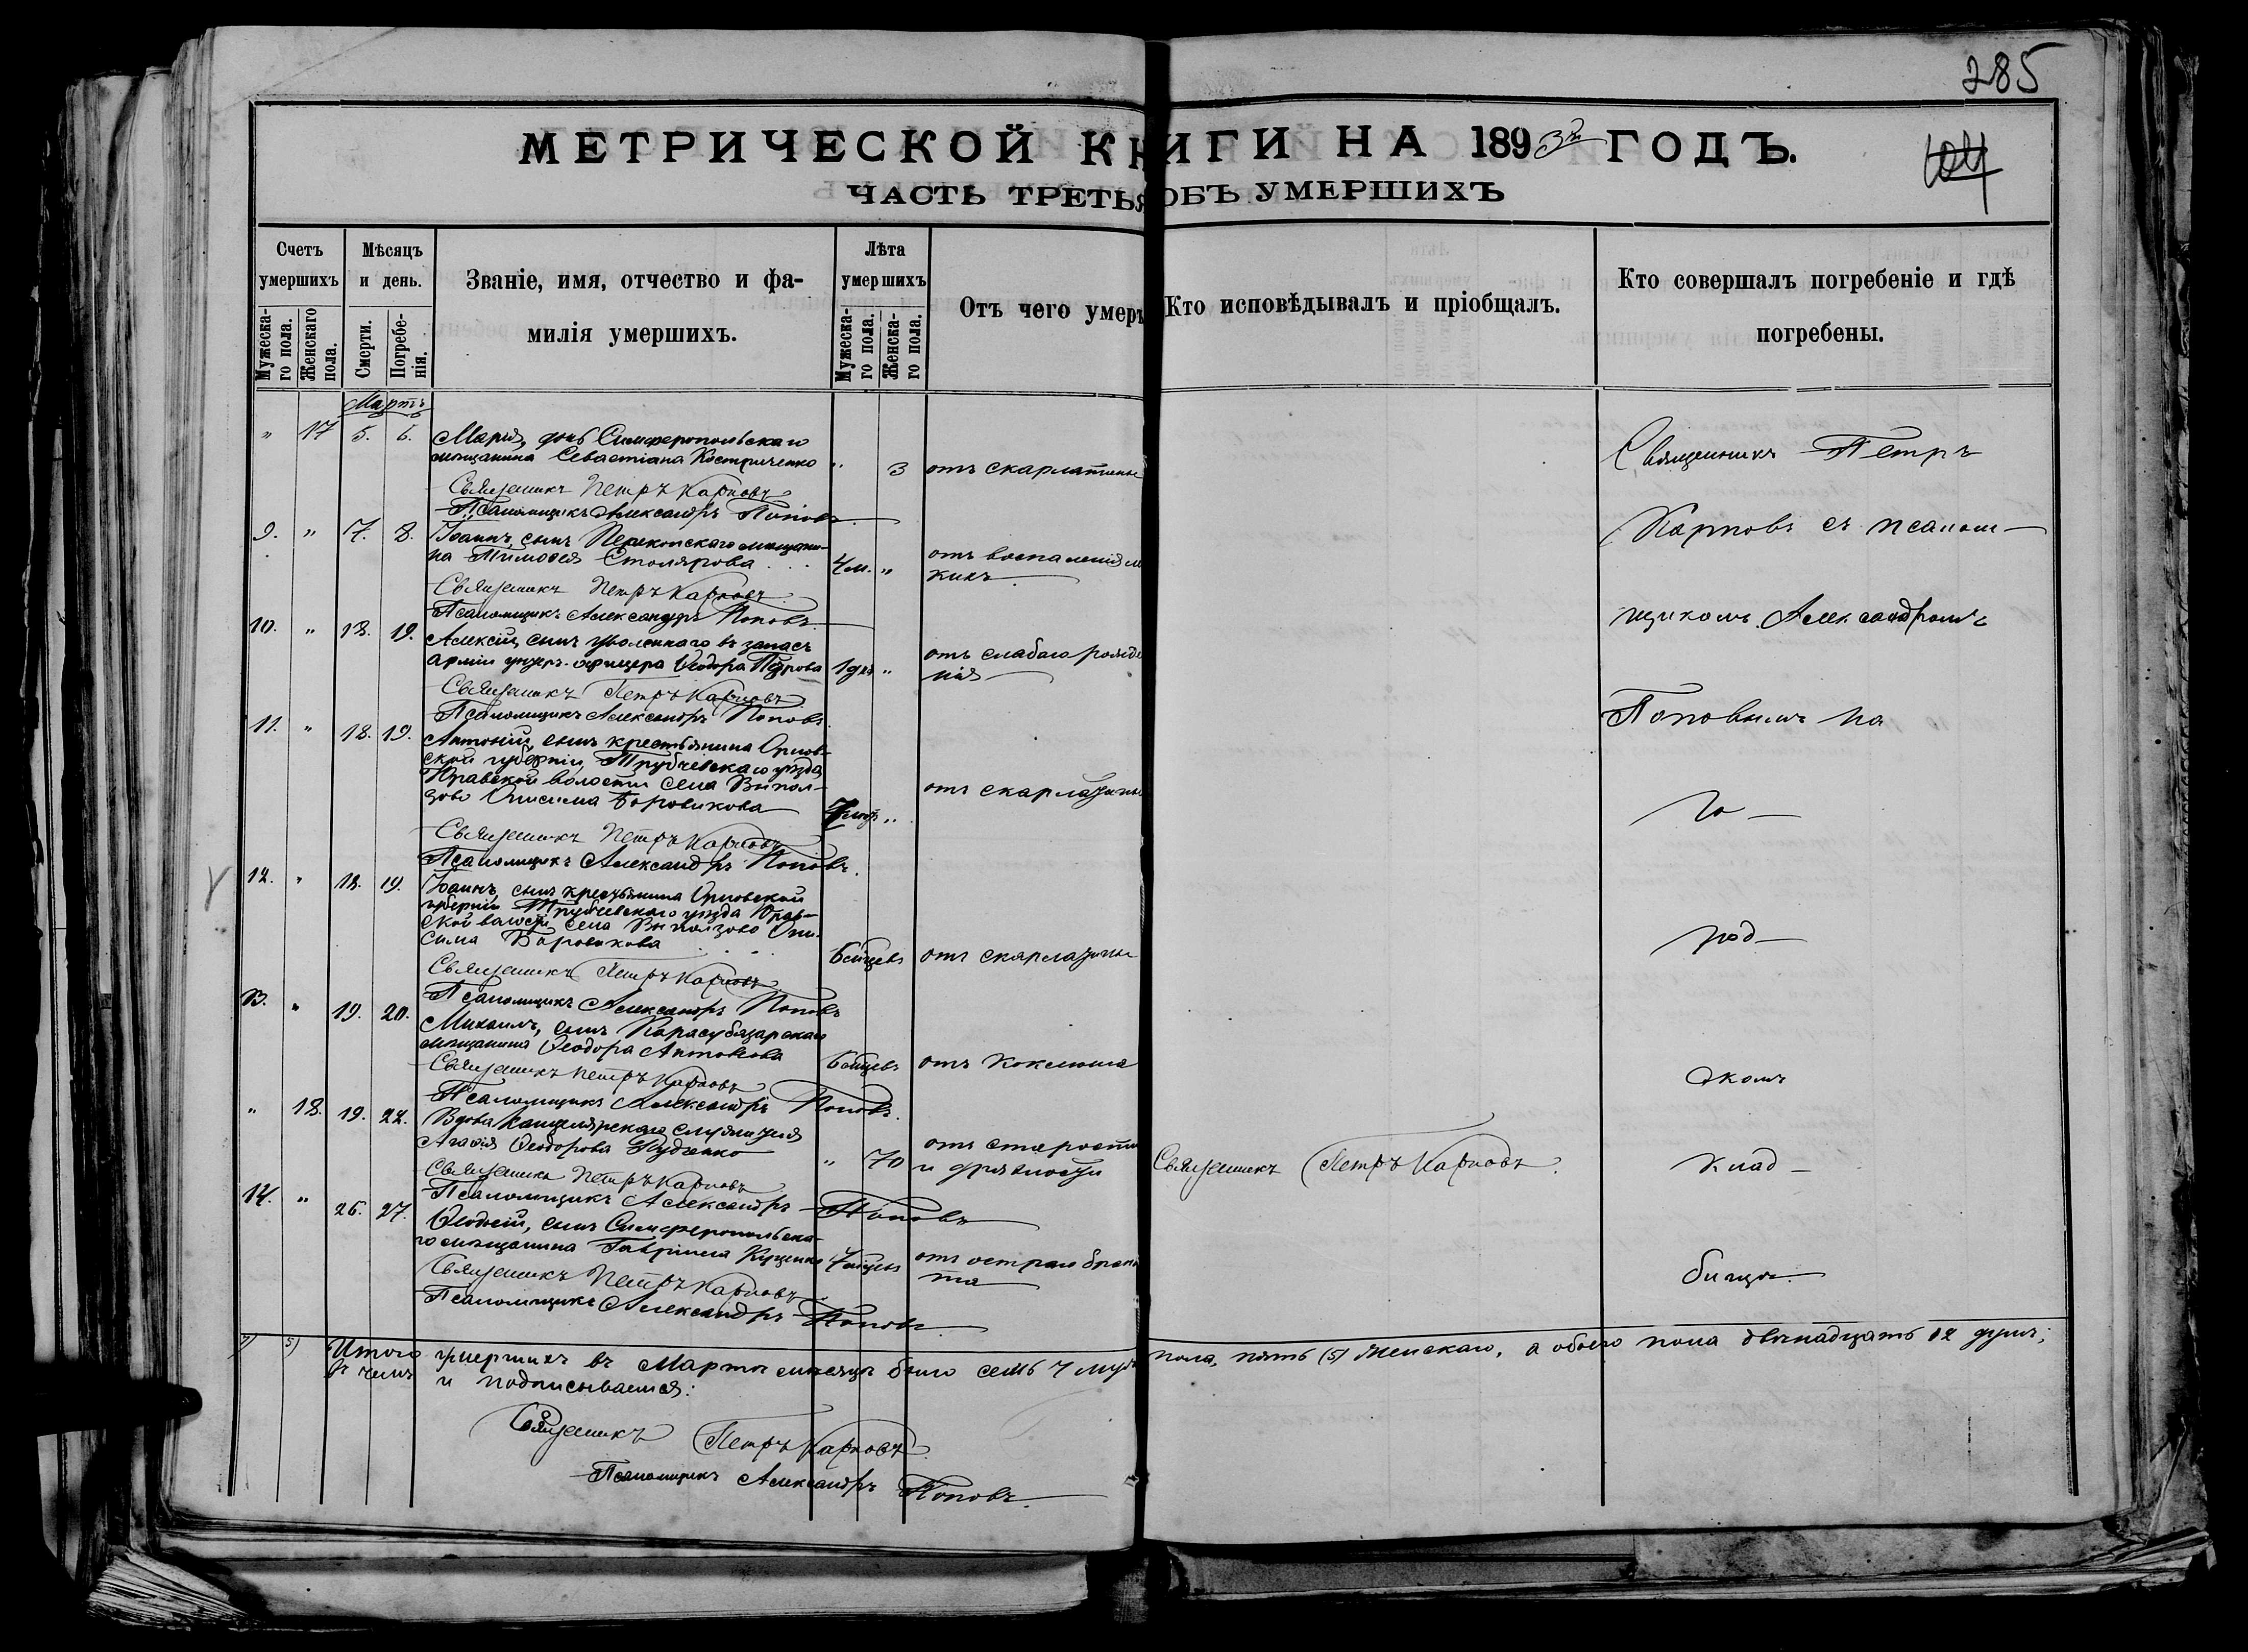 285
МЕТРИЧЕСКОЙ КНИГИ НА 1893й ГОДЪ.
104
ЧАСТЬ ТРЕТЬЯ ОБЪ УМЕРШИХЪ
Счетъ умершихъ
Мужеска-го пола.
Женскаго пола.
Мѣсяцъ и день.
Смерти.
Погребе-нія.
Званіе, имя, отчество и фа-
милія умершихъ.
Лѣта умершихъ
Мужеска-го пола.
Женска-го пола.
Отъ чего умеръ
Кто исповѣдывалъ и пріобщалъ.
Кто совершалъ погребеніе и гдѣ
погребены.
Мартъ
" 17 5. 6. Марія, дочь Симферопольскаго
мѣщанина Севастіана Костриченко " 3 отъ скарлатины
Священникъ Петръ Карповъ
Псаломщикъ Александръ Поповъ
9. " 7. 8. Іоаннъ, сынъ Перекопскаго мѣщани-
на Тимофея Столярова 4 м. " отъ воспаленія
Священникъ Петръ Карповъ
Псаломщикъ Александръ Поповъ
10. " 18. 19. Алексій, сынъ уволеннаго въ запасъ
арміи унтеръ-офицера Ѳеодора Петрова 1 дня " отъ слабаго рожде
нія
Священникъ Петръ Карповъ
Псаломщикъ Александръ Поповъ
11. " 18. 19. Антоній, сынъ крестьянина Орлов-
ской губерніи, Трубчевскаго уѣзда
Юравской волости села Выпол-
зово Онисима Боровикова " отъ скарлатины
Священникъ Петръ Карповъ
Псаломщикъ Александръ Поповъ
12. " 18. 19. Іоаннъ, сынъ крестьянина Орловской
губерніи Трубчевскаго уѣзда Юрав-
ской волости села Выползово Они-
сима Боровикова 6 мѣсяцевъ отъ скарлатины
Священникъ Петръ Карповъ
Псаломщикъ Александръ Поповъ
13. " 19. 20. Михаилъ, сынъ Карасубазарскаго
мѣщанина Ѳеодора Антонова 6 мѣсяцевъ отъ коклюша
Священникъ Петръ Карповъ
Псаломщикъ Александръ Поповъ
" 18. 19. 22. Вдова канцелярскаго служителя
Агафія Ѳеодорова " 70 отъ старости
и дряхлости
Священникъ Петръ Карповъ.
Священникъ Петръ Карповъ
Псаломщикъ Александръ Поповъ
14. " 26. 27. Ѳеодосій, сынъ Симферопольска-
го мѣщанина Гавріила Куценко отъ остраго бронхи
та
Священникъ Петръ Карповъ
Псаломщикъ Александръ Поповъ
Священникъ Петръ
Карповъ съ псалом-
щикомъ Александромъ
Поповымъ на
го-
род-
скомъ
клад-
бищѣ.
7) 5) Итого умершихъ въ Мартѣ мѣсяцѣ было семь 7 муж пола, пять (5) женскаго, а обоего пола двѣнадцать 12 душъ;
въ чемъ и подписываемся:
Священникъ Петръ Карповъ
Псаломщикъ Александръ Поповъ.